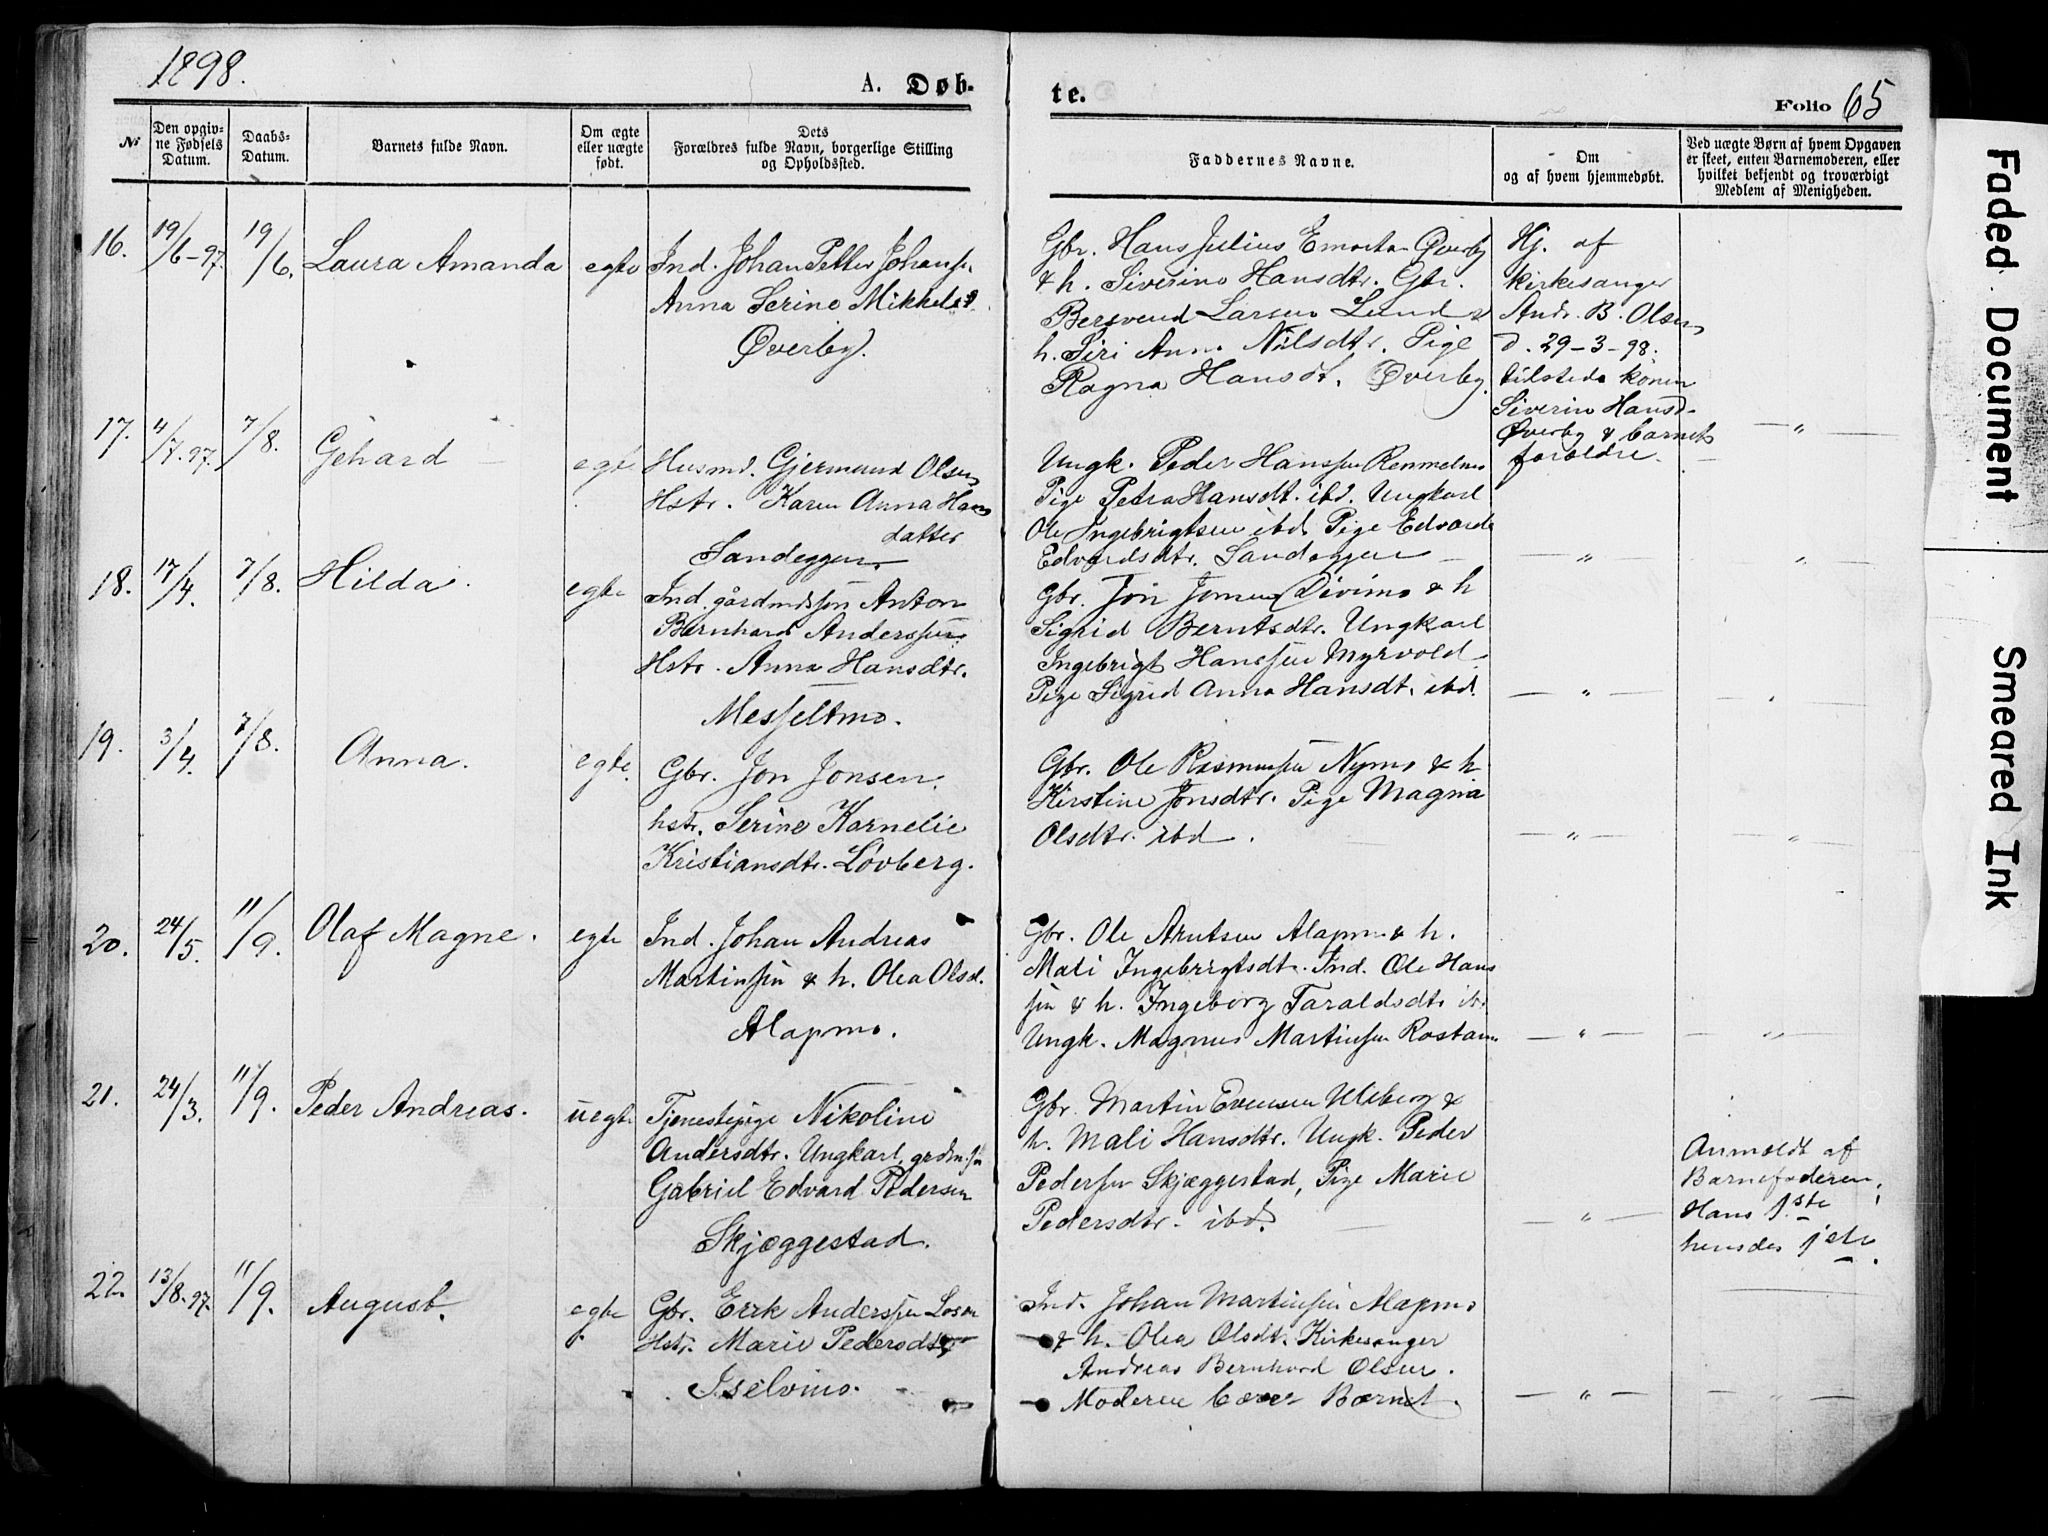 1898.
A. Døb-
te.
Folio 65
No
Den opgiv-
ne Fødsels
Datum.
Daabs-
Datum.
Barnets fulde Navn.
Om ægte
eller uægte
født.
Dets
Forældres fulde Navn, borgerlige Stilling
og Opholdssted.
Faddernes Navne.
Om
og af hvem hjemmedøbt.
Ved uægte Børn af hvem Opgaven
er skeet, enten Barnemoderen, eller
hvilket bekjendt og troværdigt
Medlem af Menigheden.
16. 19/6-97. 19/6. Laura Amanda egte
Ind. Johan Petter Johans.
Anna Serine Mikkelsd.
Øverby.
Gbr. Hans Julius Øverby
& h. Siverine Hansdtr. Gbr.
Bersvend Larsen Lund &
h. Siri Anna Nilsdtr. Pige
Ragna Hansdt. Øverby.
Hj. af
kirkesanger
Andr. B. Olsen
d. 29-3-98.
tilstede konen
Siverin Hansd.
Øverby & barnets
forældre.
17. 4/7.97. 7/8. Gehard egte
Husmd. Gjermund Olsen
Hstr. Karen Anna Hans
datter
Sandeggen
Ungk. Peder Hanssen
Pige Petra Hansdt. ibd. Ungkarl
Ole Ingebrigtsen ibd. Pige Edvarda
Edvardsdtr. Sandeggen
18. 17/4. 7/8. Hilda. egte
Ind. gårdmdssøn Anton
Bernhard Anderssen.
Hstr. Anna Hansdtr.
Messeltmo.
Gbr. Jon Jonsen Divimo & h
Sigrid Berntsdtr. Ungkarl
Ingebrigt Hanssen Myrvold
Pige Sigrid Anna Hansdt. ibd.
19. 3/4. 7/8. Anna. egte.
Gbr. Jon Jonsen.
hstr. Serine Kornelie
Kristiansdtr. Løvberg.
Gbr. Ole Rasmussen Nymo & h
Kirstine Jonsdtr. Pige Magna
Olsdtr. ibd.
20. 24/5. 11/9. Olaf Magne. egte
Ind. Johan Andreas
Martinsen & h. Olea Olsd.
Alapmo.
Gbr. Ole Arntsen Alapmo & h.
Mali Ingebrigtsdt. Ind. Ole Hans
sen & h. Ingeborg Taraldsdtr ib.
Ungk. Magnus Martinsen Rostam
21. 24/3. 11/9. Peder Andreas. uegte
Tjenestepige Nikoline
Andersdtr. Ungkarl, grdm.sn
Gabriel Edvard Pedersen
Skjæggestad.
Gbr. Martin Evensen Uleberg &
h. Mali Hansdtr. Ungk. Peder
Pedersen Skjæggestad, Pige Marie
Pedersdtr. ibd.
Anmeldt af
Barnefaderen,
Hans 1.ste
hendes 1ste.
22. 13/8-97. 11/9. August. egte
Gbr. Erik Anderssen
Hstr. Marie Pedersdtr
Iselvmo.
Ind. Johan Martinsen Alapmo
& h. Olea Olsdt. Kirkesanger
Andreas Bernhard Olsen.
Moderen barer Barnet.
Faded Document
Smeared Ink